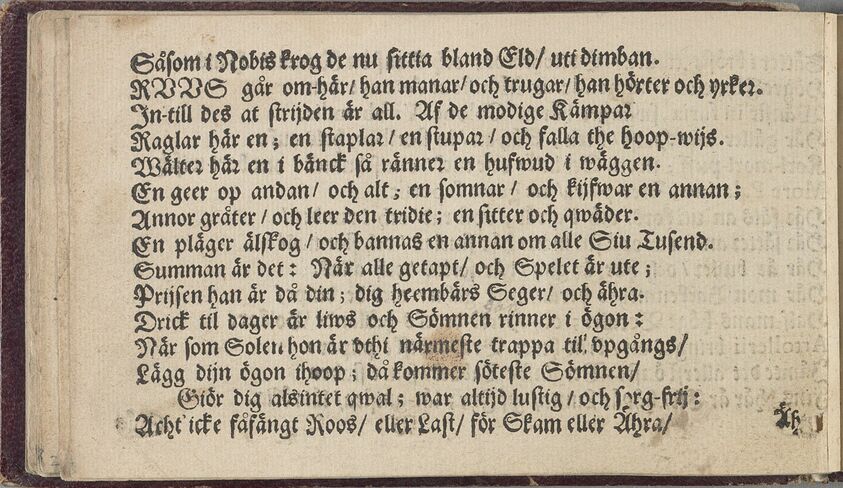 Såsom i Nobis krog de nu sittia bland Eld/ utt dimban.
RVVS går om-här/ han manar/ och trugar/ han hörter och yrker.
In-till des at strijden är all. Af de modige Kämpar
Raglar här en; en staplar/ en stupar/ och falla the hoop-wijs.
Wälter här en i bänck så ränner en hufwud i wäggen.
En geer op andan/ och alt; en somnar/ och kijfwar en annan;
Annor gråter/ och leer den tridie; en sitter och qwäder.
En pläger älskog/ och bannas en annan om alle Siu Tusend.
Summan är det: När alle getapt/ och Spelet är ute;
Prijsen han är då din; dig heembärs Seger/ och ähra.
Drick til dager är liws och Sömnen rinner i ögon:
När som Solen hon är vthi närmeste trappa til vpgångs/
Lägg dijn ögon ihoop; då kommer söteste Sömnen/
Giör dig alsintet qwal; war altijd lustig/ och sorg-frij:
Acht icke fåfängt Roos/ eller Last/ för Skam eller Ähra/
Äh